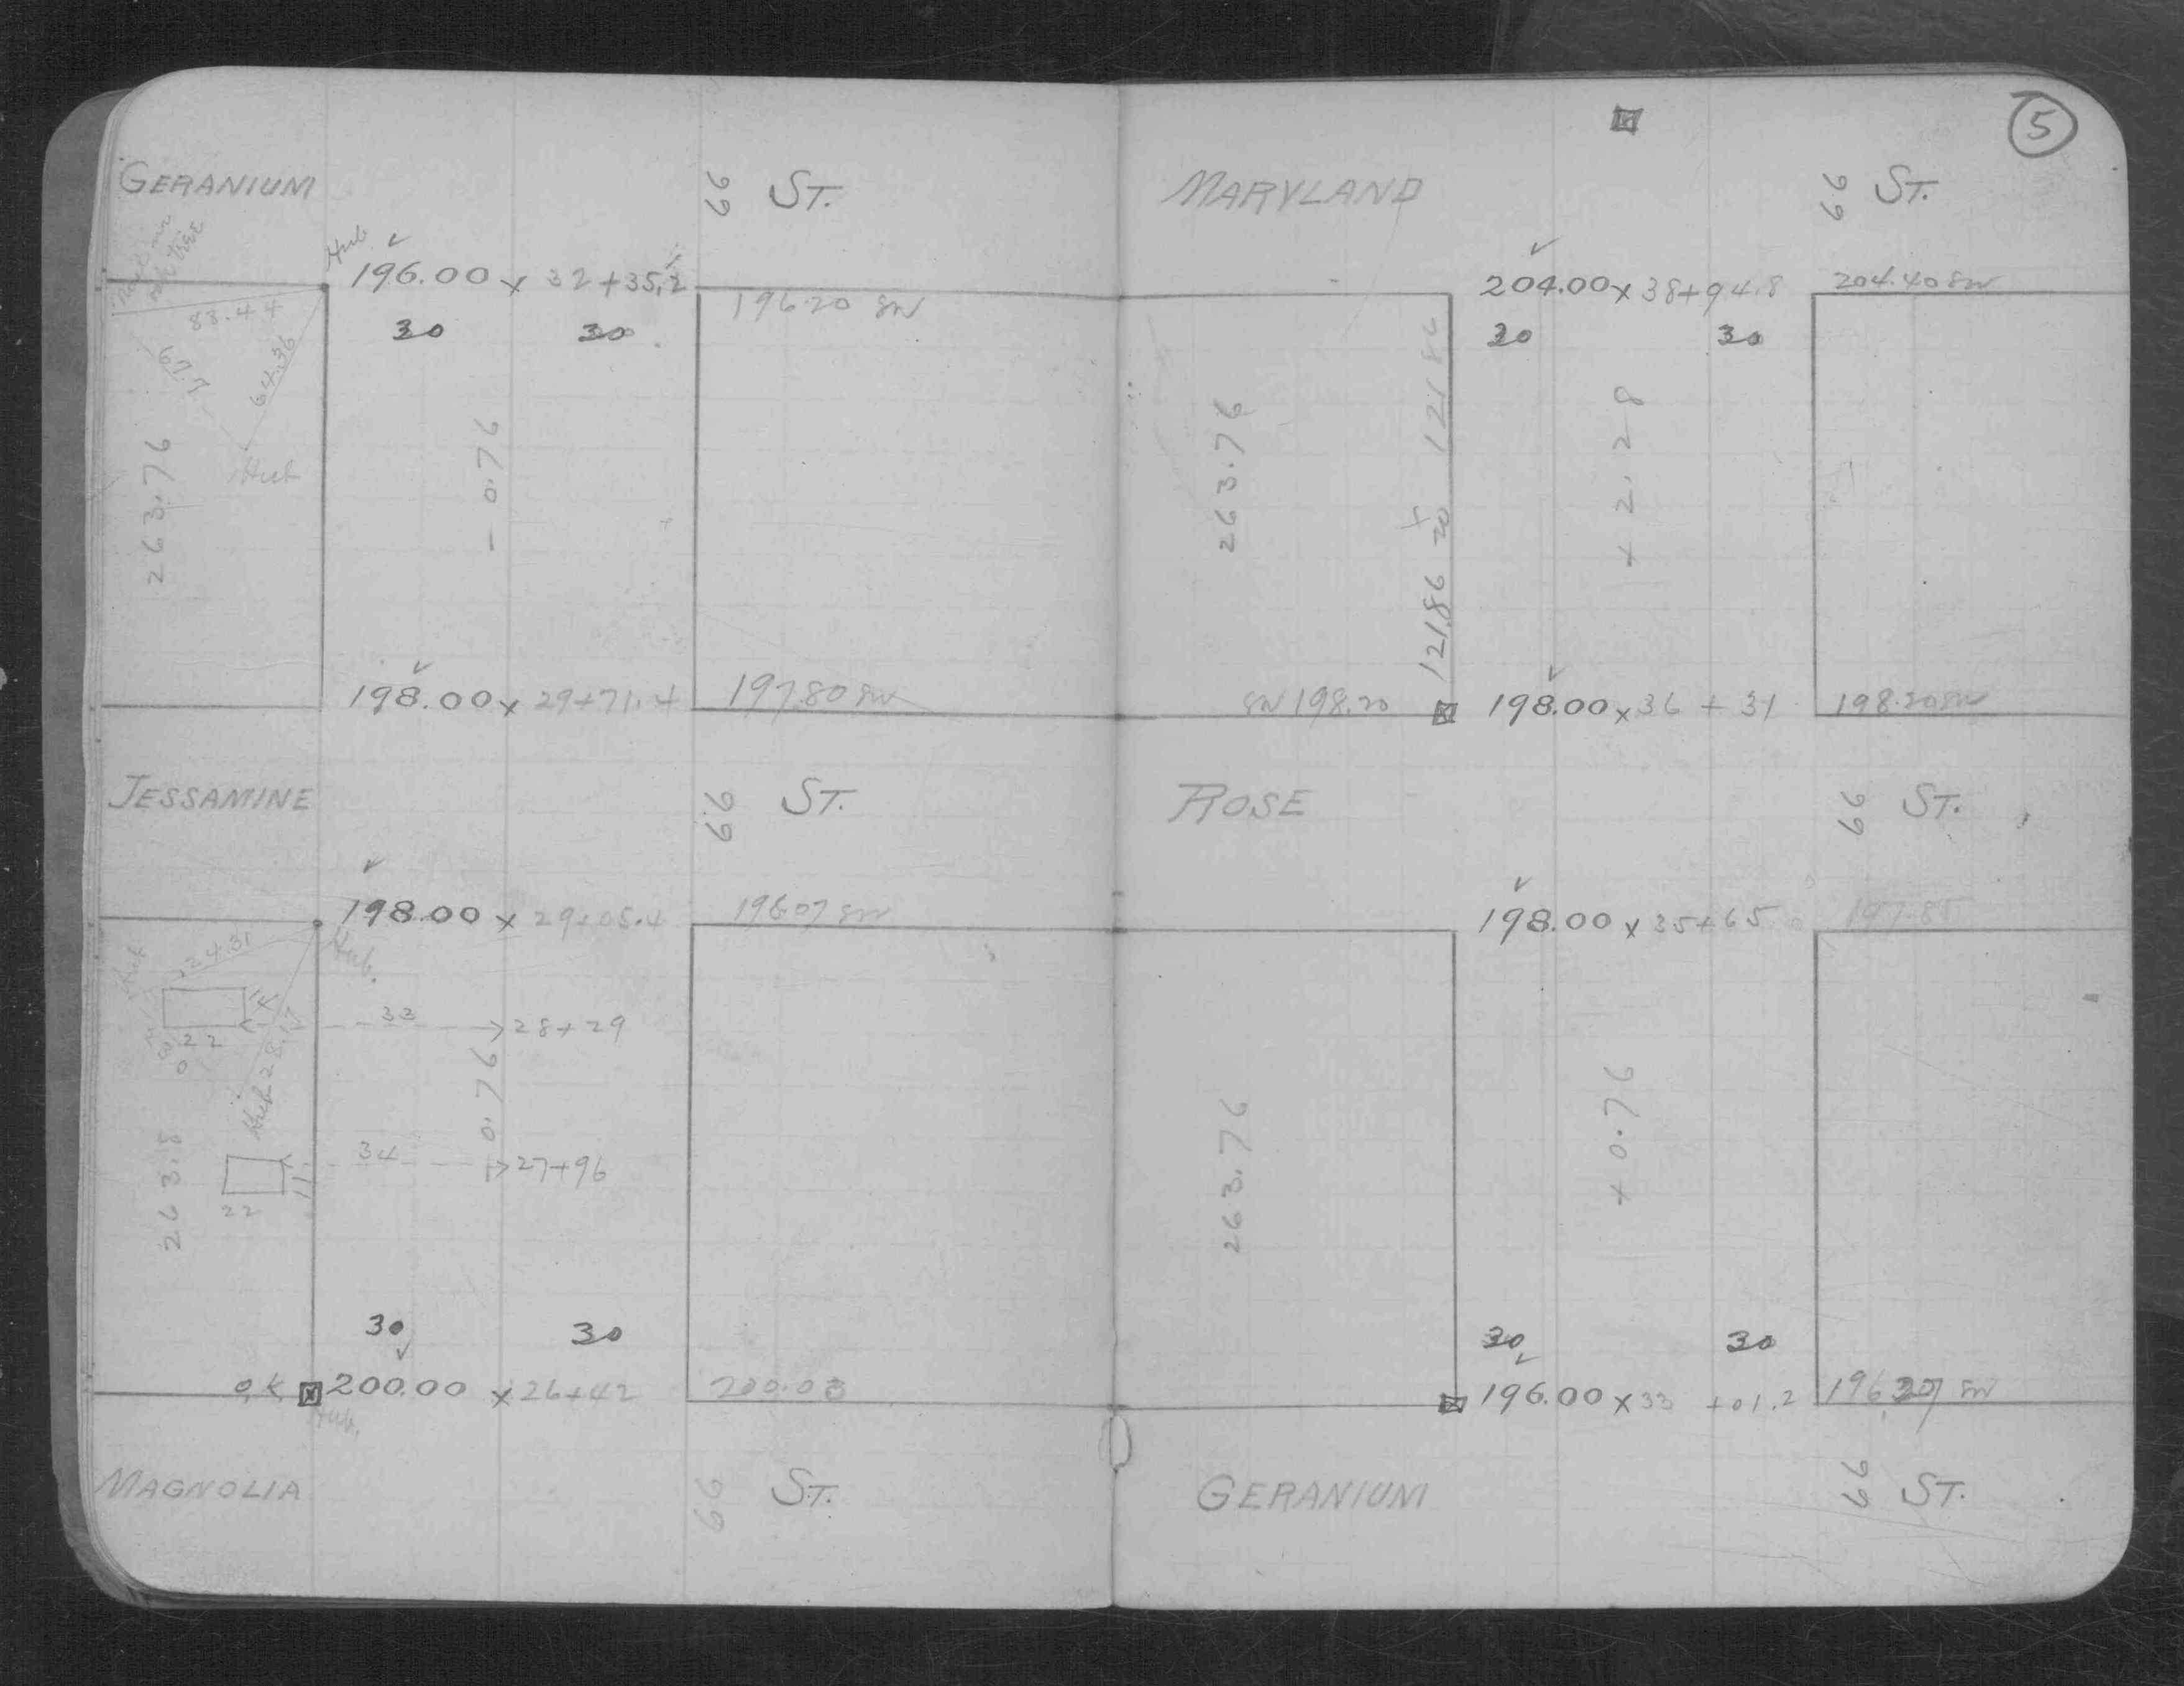 GERANIUM 66 ST.
Hub
196.00 x 32+35.2
196.20 SW
88.44
30 30
64.36
Hub
263.76
- 0.76
198.00 x 29+71.4
197.80 SW
JESSAMINE 66 ST.
198.00 x 29+05.4
196.07 SW
Hub.
34.31
Hub
33 28+29
22
Hub 28.17
0.76
34 27+96
11
22
263.8
30 30
O.K. 200.00 x 26+42
200.03
Hub.
MAGNOLIA 66 ST.
5
MARYLAND 66 ST.
204.00 x 38+94.8
204.40 SW
30 30
263.76
121.86 20 121.86
+ 2.28
SW 198.20
198.00 x 36 + 31
198.20 SW
ROSE 66 ST.
198.00 x 35+65
197.85
263.76
+ 0.76
30 30
196.00 x 33 +01.2
SW
GERANIUM 66 ST.